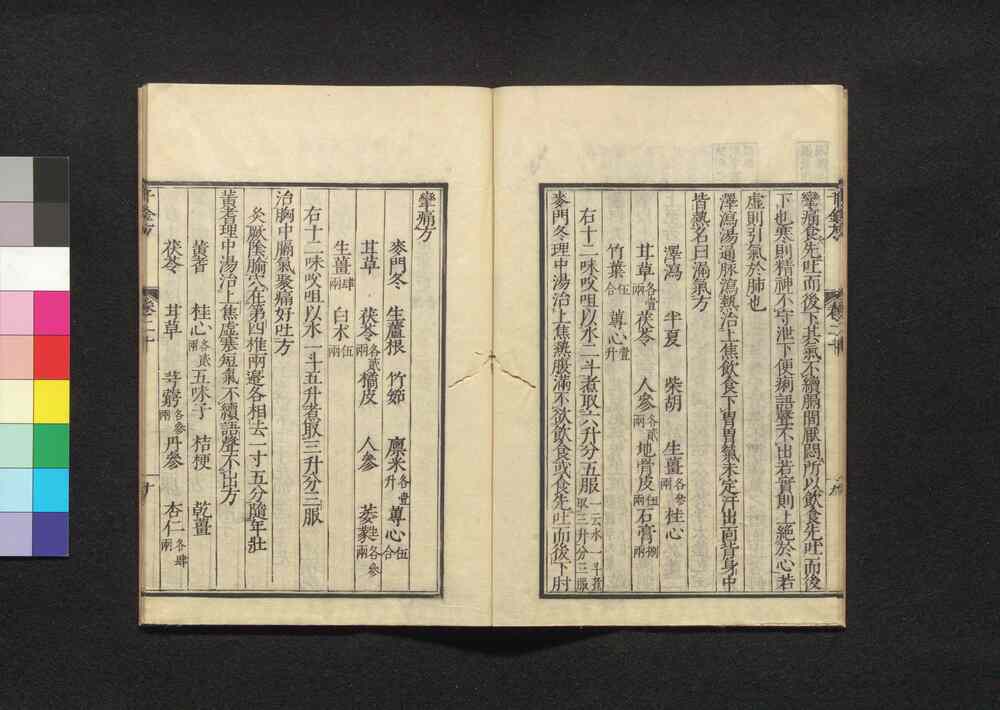 攣痛食先吐而後下其氣不續膈間厭悶所以飲食先吐而後
下也寒則精神不守泄下便痢語聲不出若實則上絕於心若
虛則引氣於肺也
澤瀉湯通脉瀉熱治上焦飲食下胃胃氣未定汗出面背身中
皆熱名曰漏氣方
澤瀉 半夏 柴胡 生薑各參兩 桂心
甘草各壹兩 茯苓 人參各貳兩 地骨皮伍兩 石膏捌兩
竹葉伍合 蓴心壹升
右十二味㕮咀以水二斗煮取六升分五服一云水一斗煮取三升分三服
麥門冬理中湯治上焦熱腹滿不欲飲食或食先吐而後下肘
攣痛方
麥門冬 生蘆根 竹茹 廩米各壹升 蓴心伍合
甘草 茯苓各貳兩 橘皮 人參 萎蕤各參兩
生薑肆兩 白朮伍兩
右十二味㕮咀以水一斗五升煮取三升分三服
治胸中膈氣聚痛好吐方
灸厥陰腧穴在第四椎兩邊各相去一寸五分隨年壯
黃耆理中湯治上焦虛寒短氣不續語聲不出方
黃耆 桂心各貳兩 五味子 桔梗 乾薑
茯苓 甘草 芎藭各參兩 丹參 杏仁各肆兩
千金方
卷二十
十